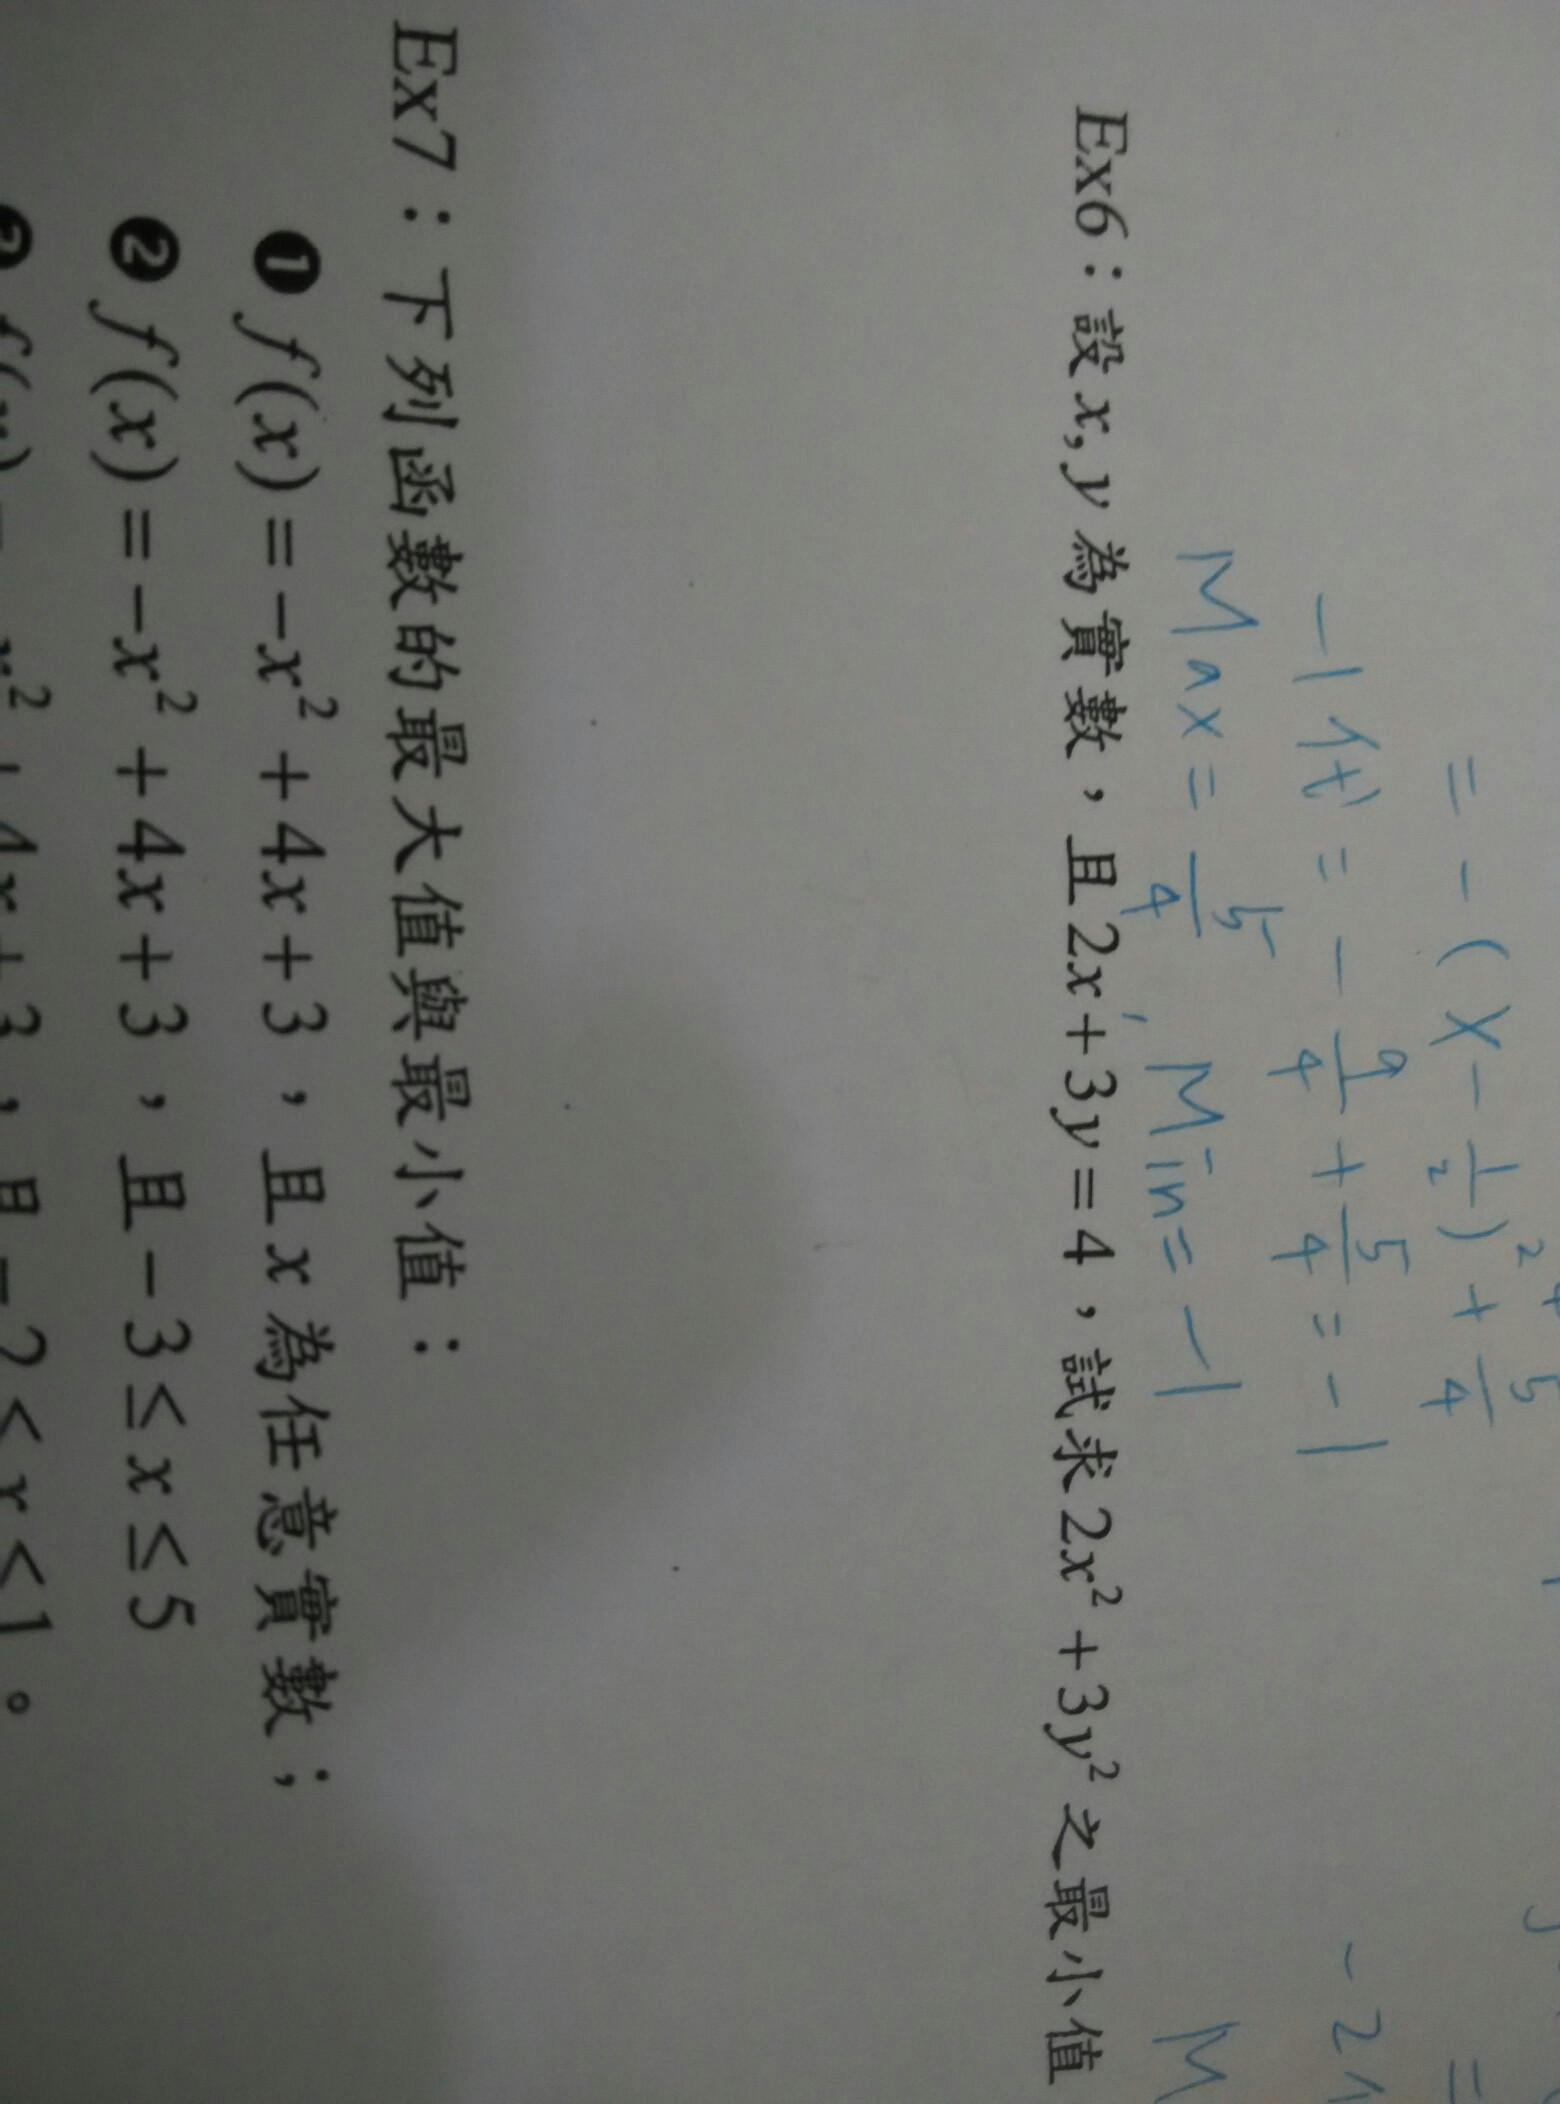 = -(x - 1/2)² + 5/4
-1代 = -9/4 + 5/4 = -1
Max = 5/4, Min = -1
Ex6：設x,y為實數，且2x+3y=4，試求2x²+3y²之最小值
Ex7：下列函數的最大值與最小值：
❶ f(x)=-x²+4x+3，且x為任意實數；
❷ f(x)=-x²+4x+3，且-3≤x≤5